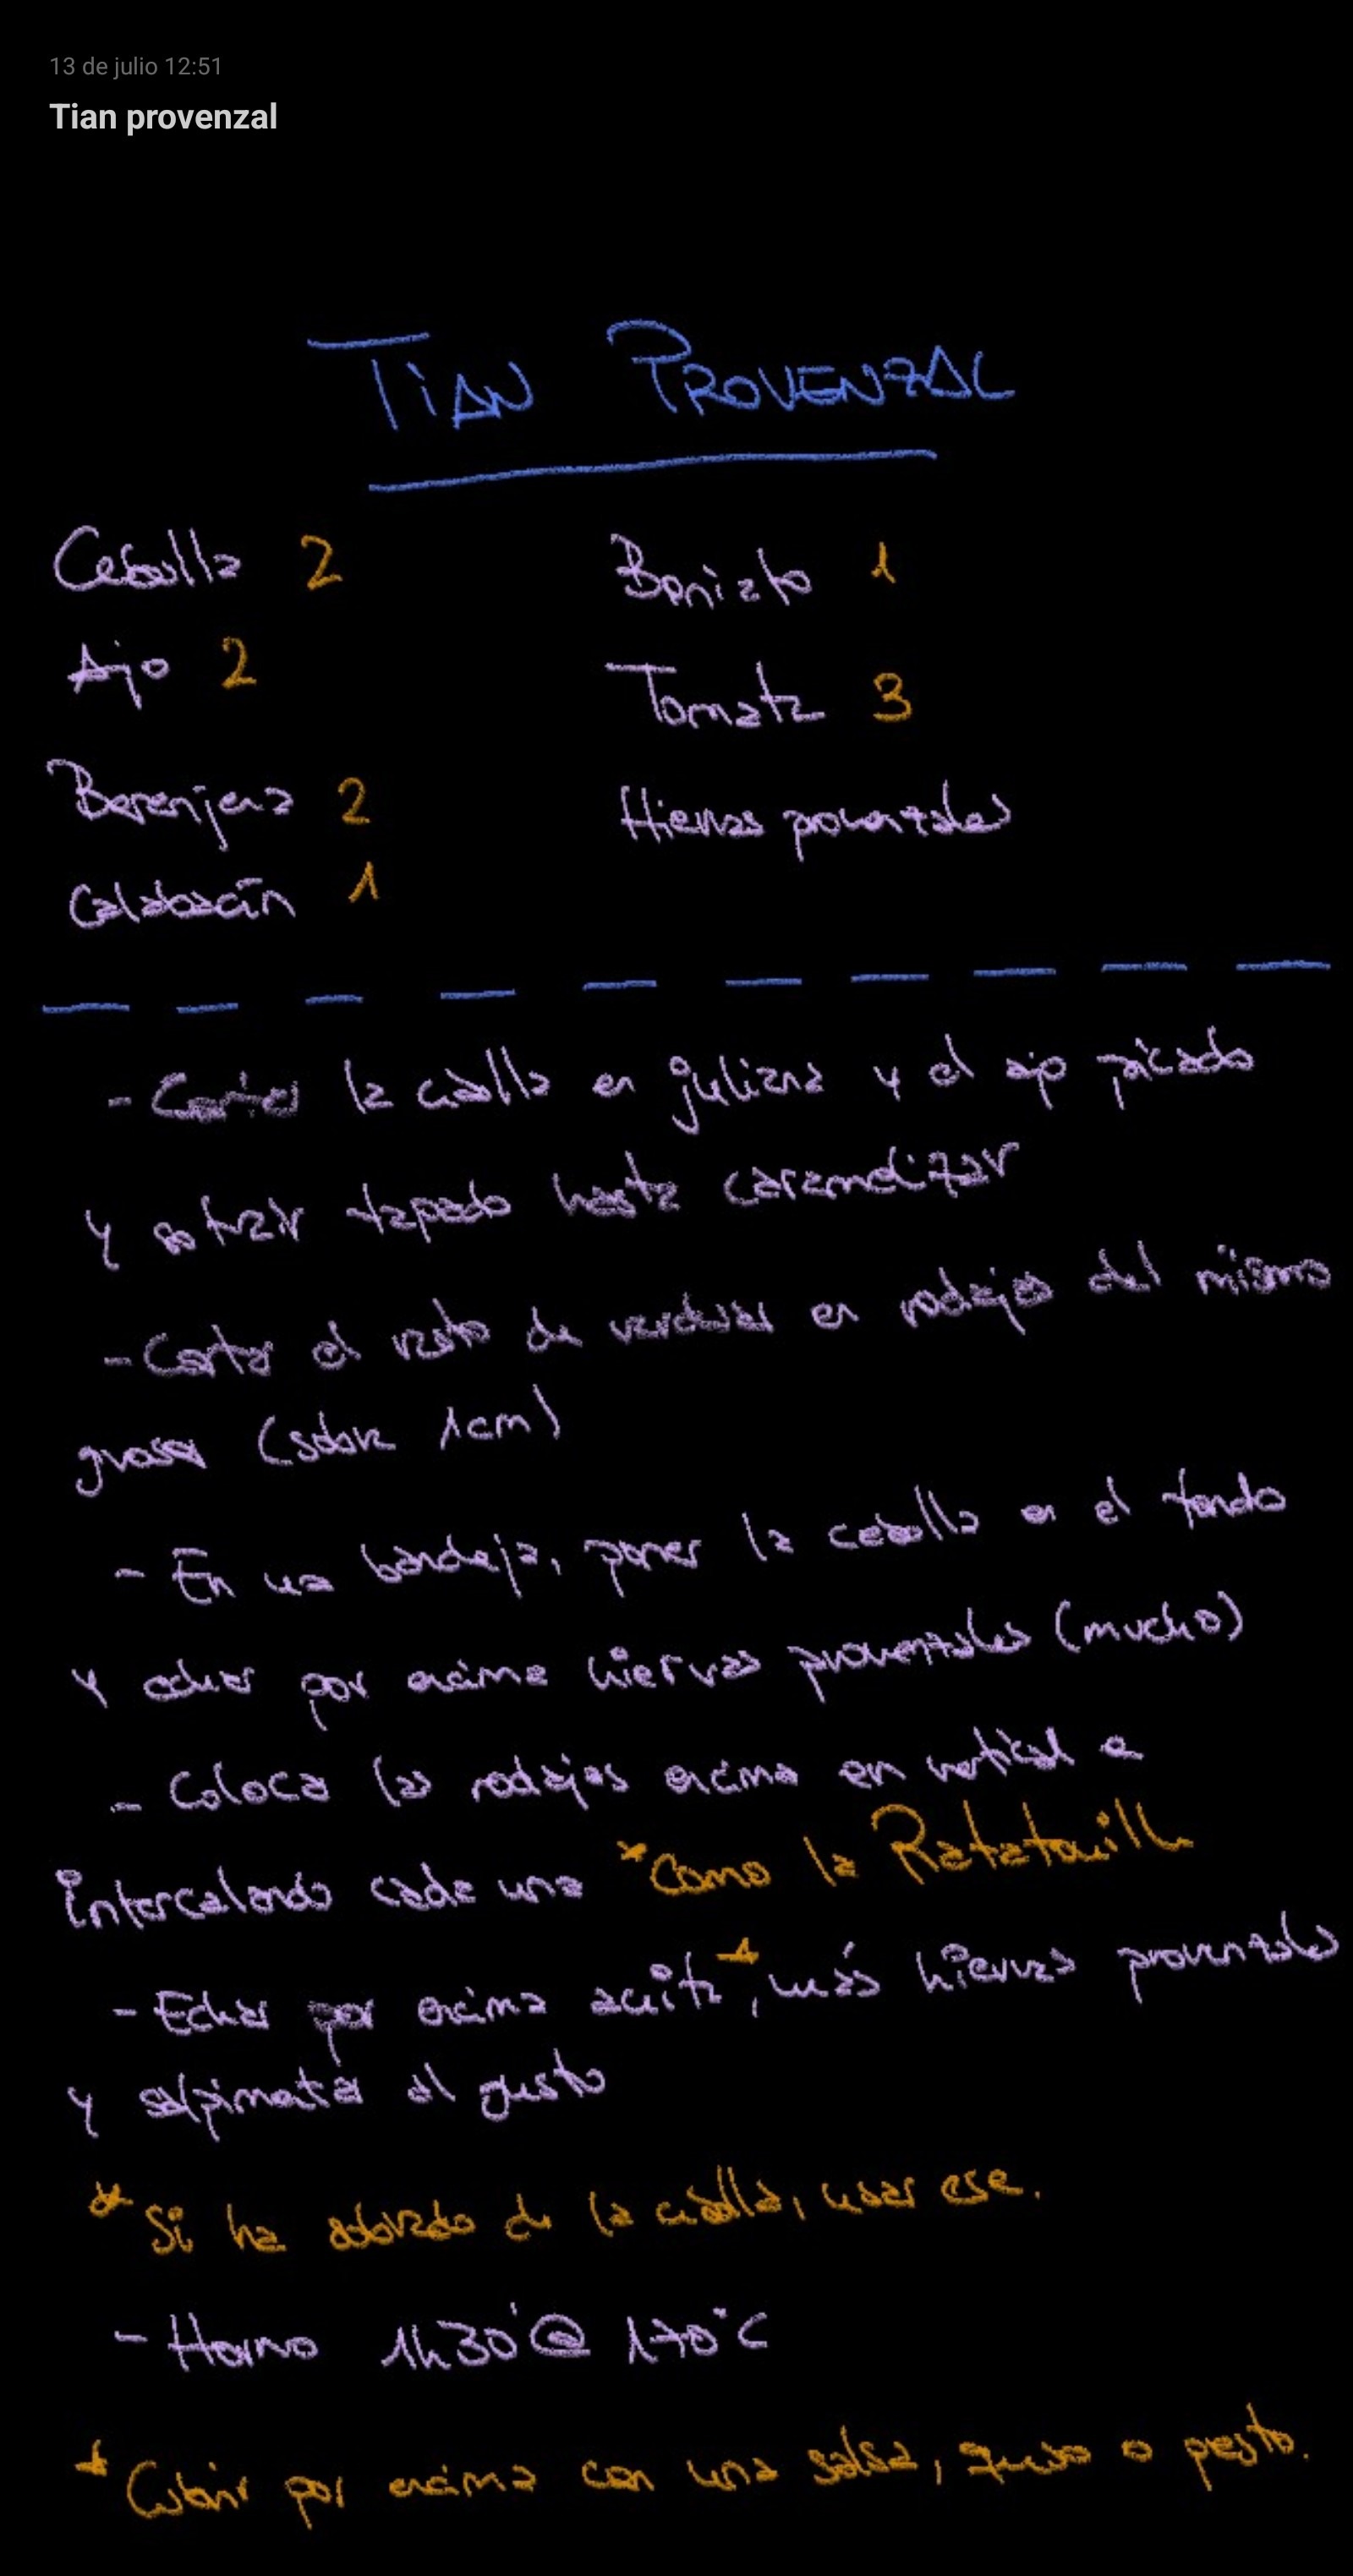 13 de julio 12:51
Tian provenzal
TIAN PROVENZAL
Cebolla 2
Boniato 1
Ajo 2
Tomate 3
Berenjena 2
Hierbas provenzales
Calabacín 1
- Cortar la cebolla en juliana y el ajo picado
y sofreír tapado hasta caramelizar
- Cortar el resto de verduras en rodajas del mismo
grosor (sobre 1cm)
- En una bandeja, poner la cebolla en el fondo
y echar por encima hiervas provenzales (mucho)
- Coloca las rodajas encima en vertical e
intercalando cada una *Como la Ratatouille
- Echar por encima aceite*, más hiervas provenzales
y salpimentar al gusto
* Si ha sobrado de la cebolla, usar ese.
- Horno 1h30' @ 170°C
* Cubrir por encima con una salsa, queso o pesto.